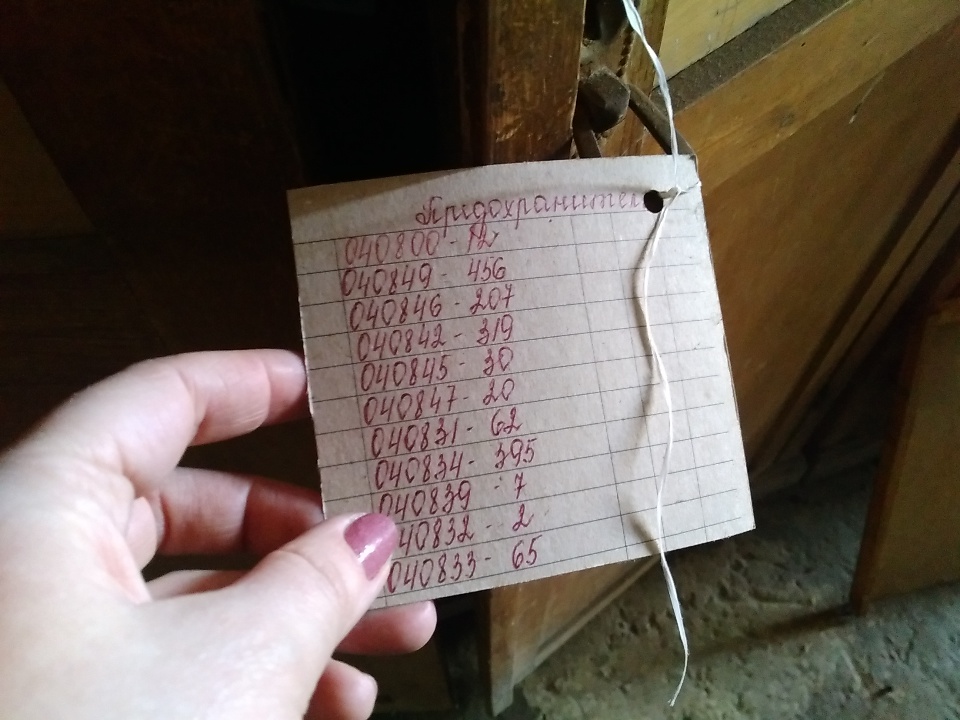 Предохранител
040800 - 12
040849 - 456
040846 - 207
040842 - 319
040845 - 30
040847 - 20
040831 - 62
040834 - 395
040839 - 7
40832 - 2
040833 - 65